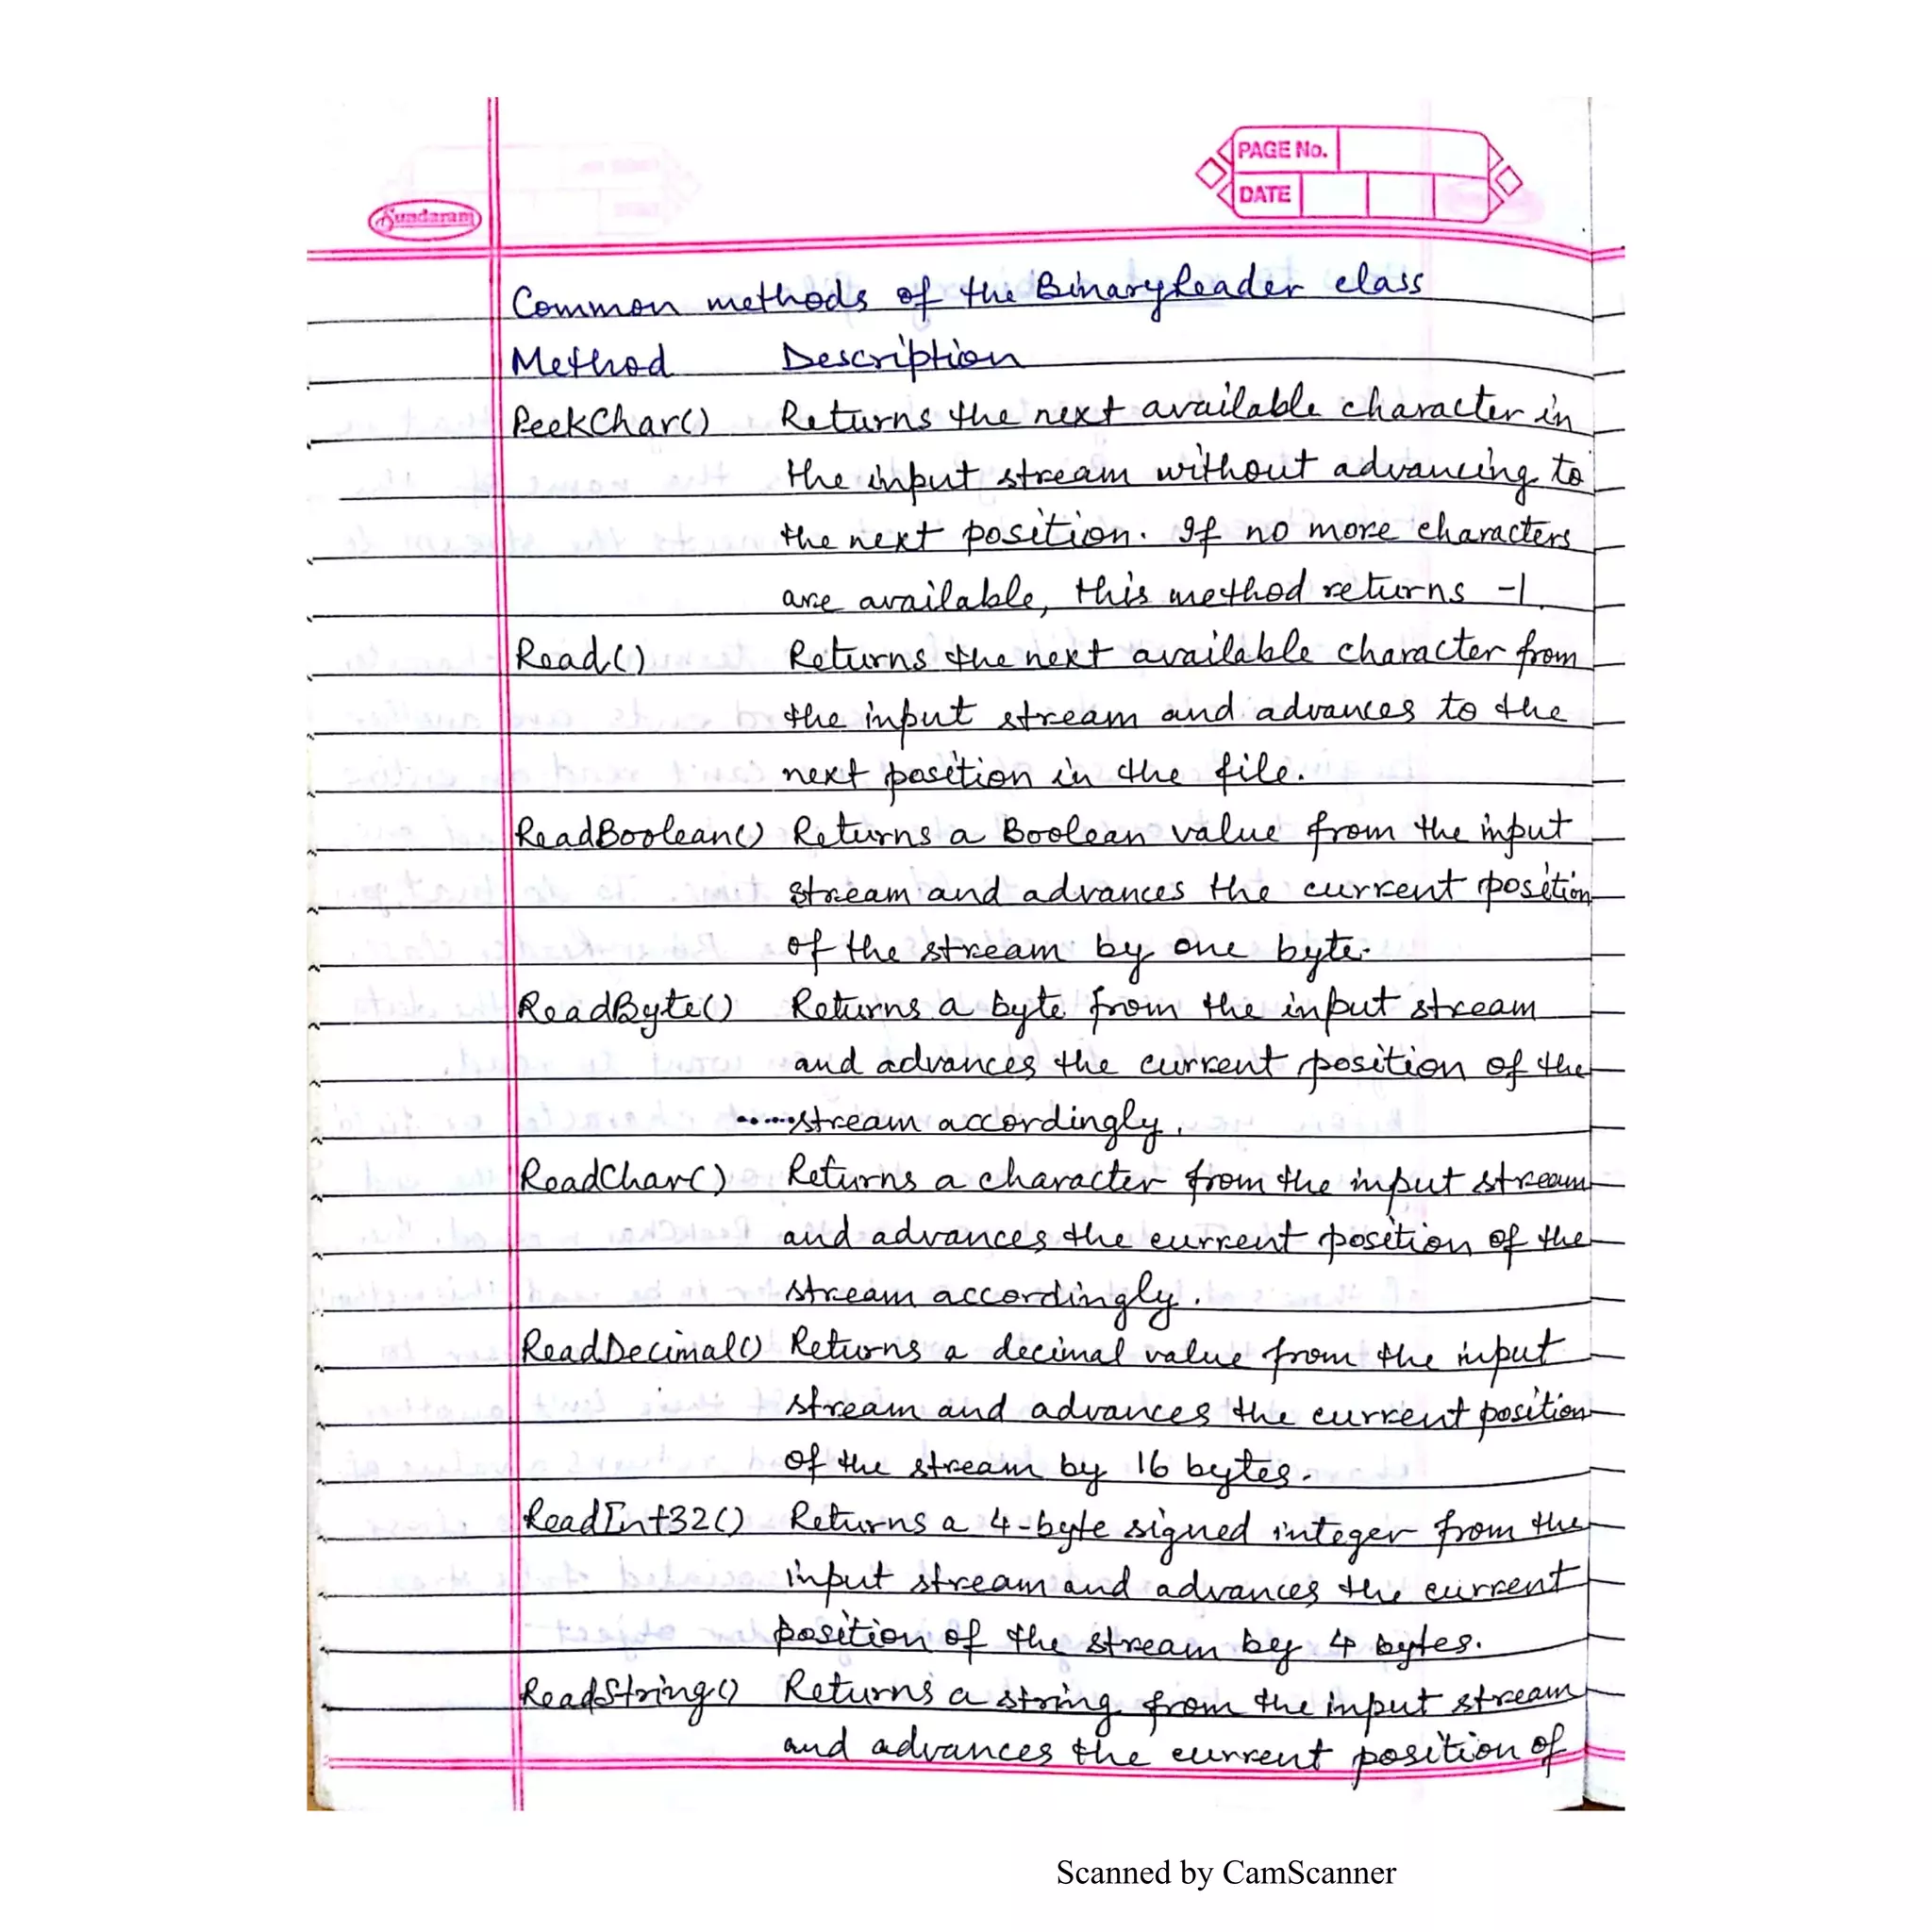 Sundaram
PAGE No.
DATE
Common methods of the BinaryReader class
Method Description
PeekChar() Returns the next available character in
the input stream without advancing to
the next position. If no more characters
are available, this method returns -1.
Read() Returns the next available character from
the input stream and advances to the
next position in the file.
ReadBoolean() Returns a Boolean value from the input
stream and advances the current position
of the stream by one byte.
ReadByte() Returns a byte from the input stream
and advances the current position of the
stream accordingly.
ReadChar() Returns a character from the input stream
and advances the current position of the
stream accordingly.
ReadDecimal() Returns a decimal value from the input
stream and advances the current position
of the stream by 16 bytes.
ReadInt32() Returns a 4-byte signed integer from the
input stream and advances the current
position of the stream by 4 bytes.
ReadString() Returns a string from the input stream
and advances the current position of
Scanned by CamScanner